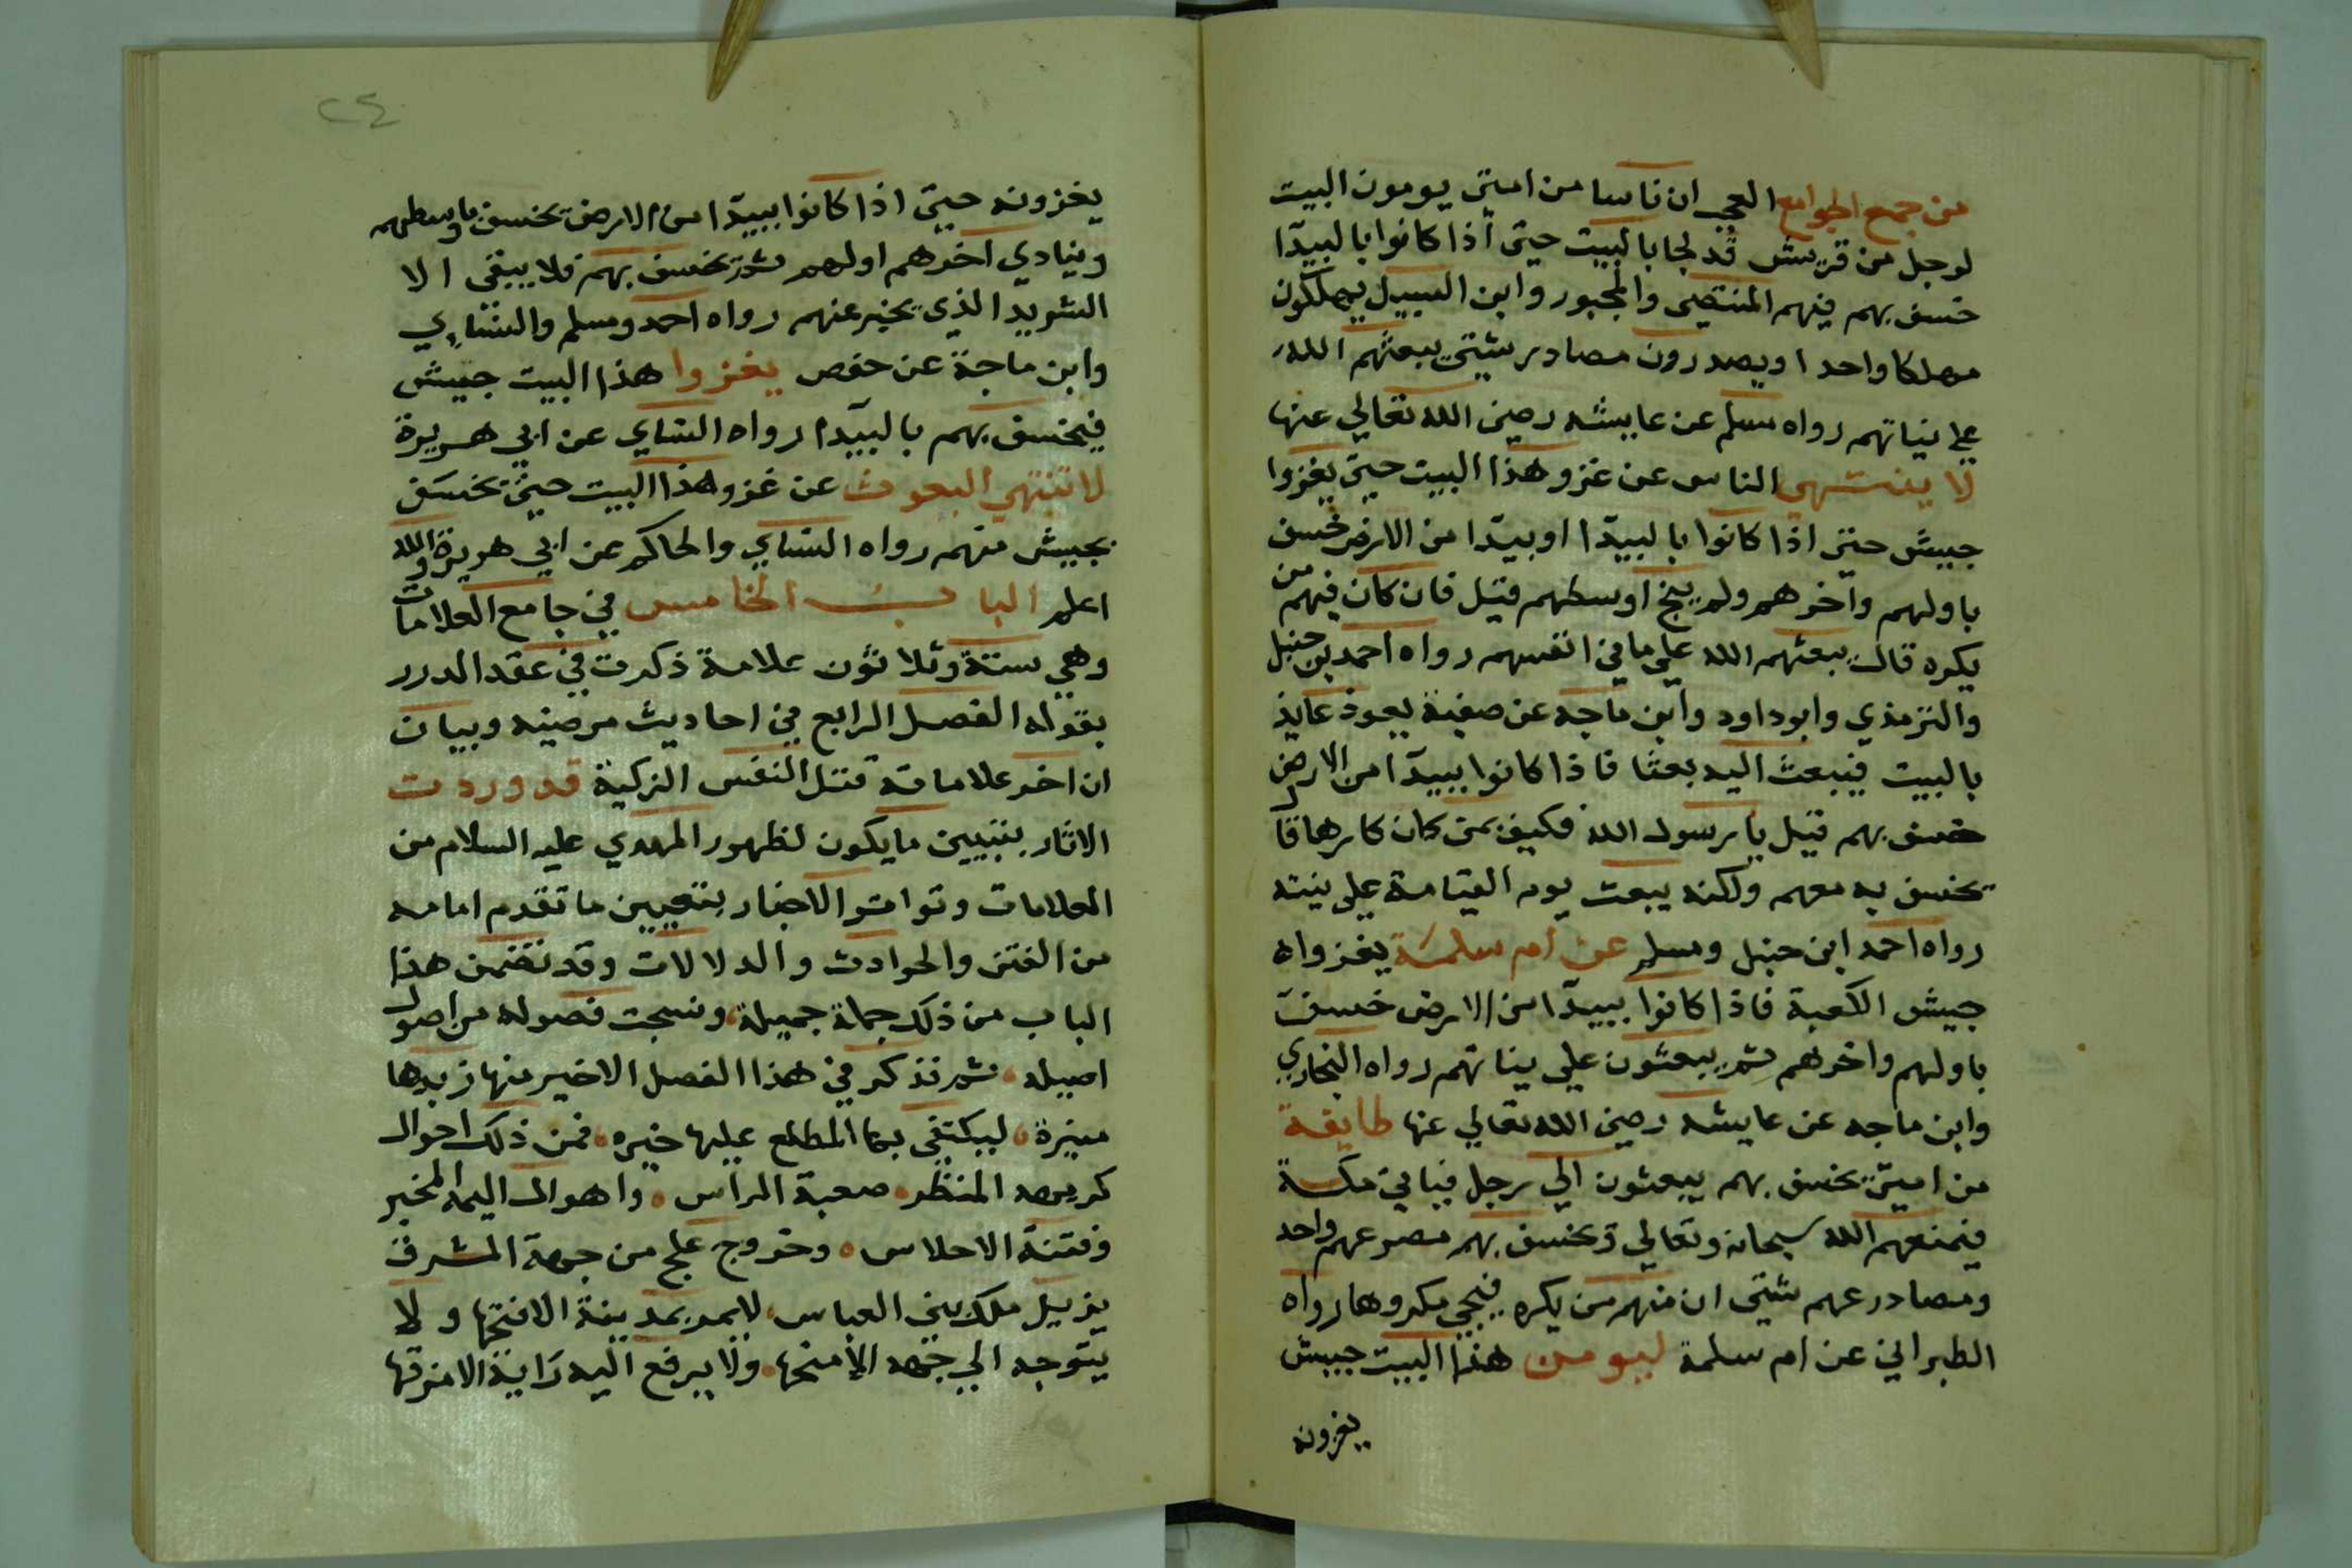 من جمع الجوامع العجب ان ناسا من امتى يومون البيت
لرجل من قريش قد لجا بالبيت حتى اذا كانوا بالبيدا
خسف بهم فيهم المنتصى والمجبور وابن السبيل يهلكون
مهلكا واحدا ويصدرون مصادر شتى يبعثهم الله
على نياتهم رواه مسلم عن عايشه رضى الله تعالى عنها
لا ينتهى الناس عن غزو هذا البيت حتى يغزوا
جيش حتى اذا كانوا بالبيدا او بيدا من الارض خسف
باولهم واخرهم ولم ينج اوسطهم قيل فان كان فيهم من
يكره قال يبعثهم الله على ما في انفسهم رواه احمد بن حنبل
والترمذي وابو داود وابن ماجه عن صفية يعوذ عايذ
بالبيت فيبعث اليه بعثا فاذا كانوا ببيدا من الارض
خسف بهم قيل يا رسول الله فكيف بمن كان كارها قال
يخسف به معهم ولكنه يبعث يوم القيامة على نيته
رواه احمد ابن حنبل ومسلم عن ام سلمة يغزوا ه
جيش الكعبة فاذا كانوا ببيدا من الارض خسف
باولهم واخرهم ثم يبعثون على نياتهم رواه البخاري
وابن ماجه عن عايشه رضى الله تعالى عنها طايفة
من امتى يخسف بهم يبعثون الى رجل فياتى مكة
فيمنعهم الله سبحانه وتعالى ويخسف بهم مصرعهم واحد
ومصادرعهم شتى ان منهم من يكره فيجى مكروها رواه
الطبراني عن ام سلمة ليومن هذا البيت جيش
يغزونه
٢٤
يغزونه حتى اذا كانوا ببيدا من الارض يخسف باوسطهم
وينادي اخرهم اولهم ثم يخسف بهم فلا يبقى الا
الشريد الذي يخبر عنهم رواه احمد ومسلم والنساي
وابن ماجة عن حفص يغزوا هذا البيت جيش
فيخسف بهم بالبيدا رواه النساي عن ابي هريرة
لا تنتهي البعوث عن غزو هذا البيت حتى يخسف
بجيش منهم رواه النساي والحاكم عن ابي هريرة والله
اعلم الباب الخامس في جامع العلامات
وهي ستة وثلاثون علامة ذكرت في عقد الدرر
بقوله الفصل الرابع في احاديث مرضيه وبيان
ان اخر علاماته قتل النفس الزكية قد وردت
الاثار بتبيين ما يكون لظهور المهدي عليه السلام من
العلامات وتواترت الاخبار بتعيين ما تقدم امامه
من الفتن والحوادث والدلالات وقد تضمن هذا
الباب من ذلك جملة جميلة ونسجت فصوله من اصول
اصيله ثم نذكر في هذا الفصل الاخير منها زبدها
منيرة ليكتفى بها المطلع عليها خيره فمن ذلك احوال
كريهه المنظر صعبة المراس واهوال اليمه المخبر
وفتنة الاحلاس وخروج علج من جهة المشرق
يزيل ملك بني العباس لا يمر بمدينة الا فتحها ولا
يتوجه الى جهه الا منحها ولا يرفع اليه راية الا مزقها